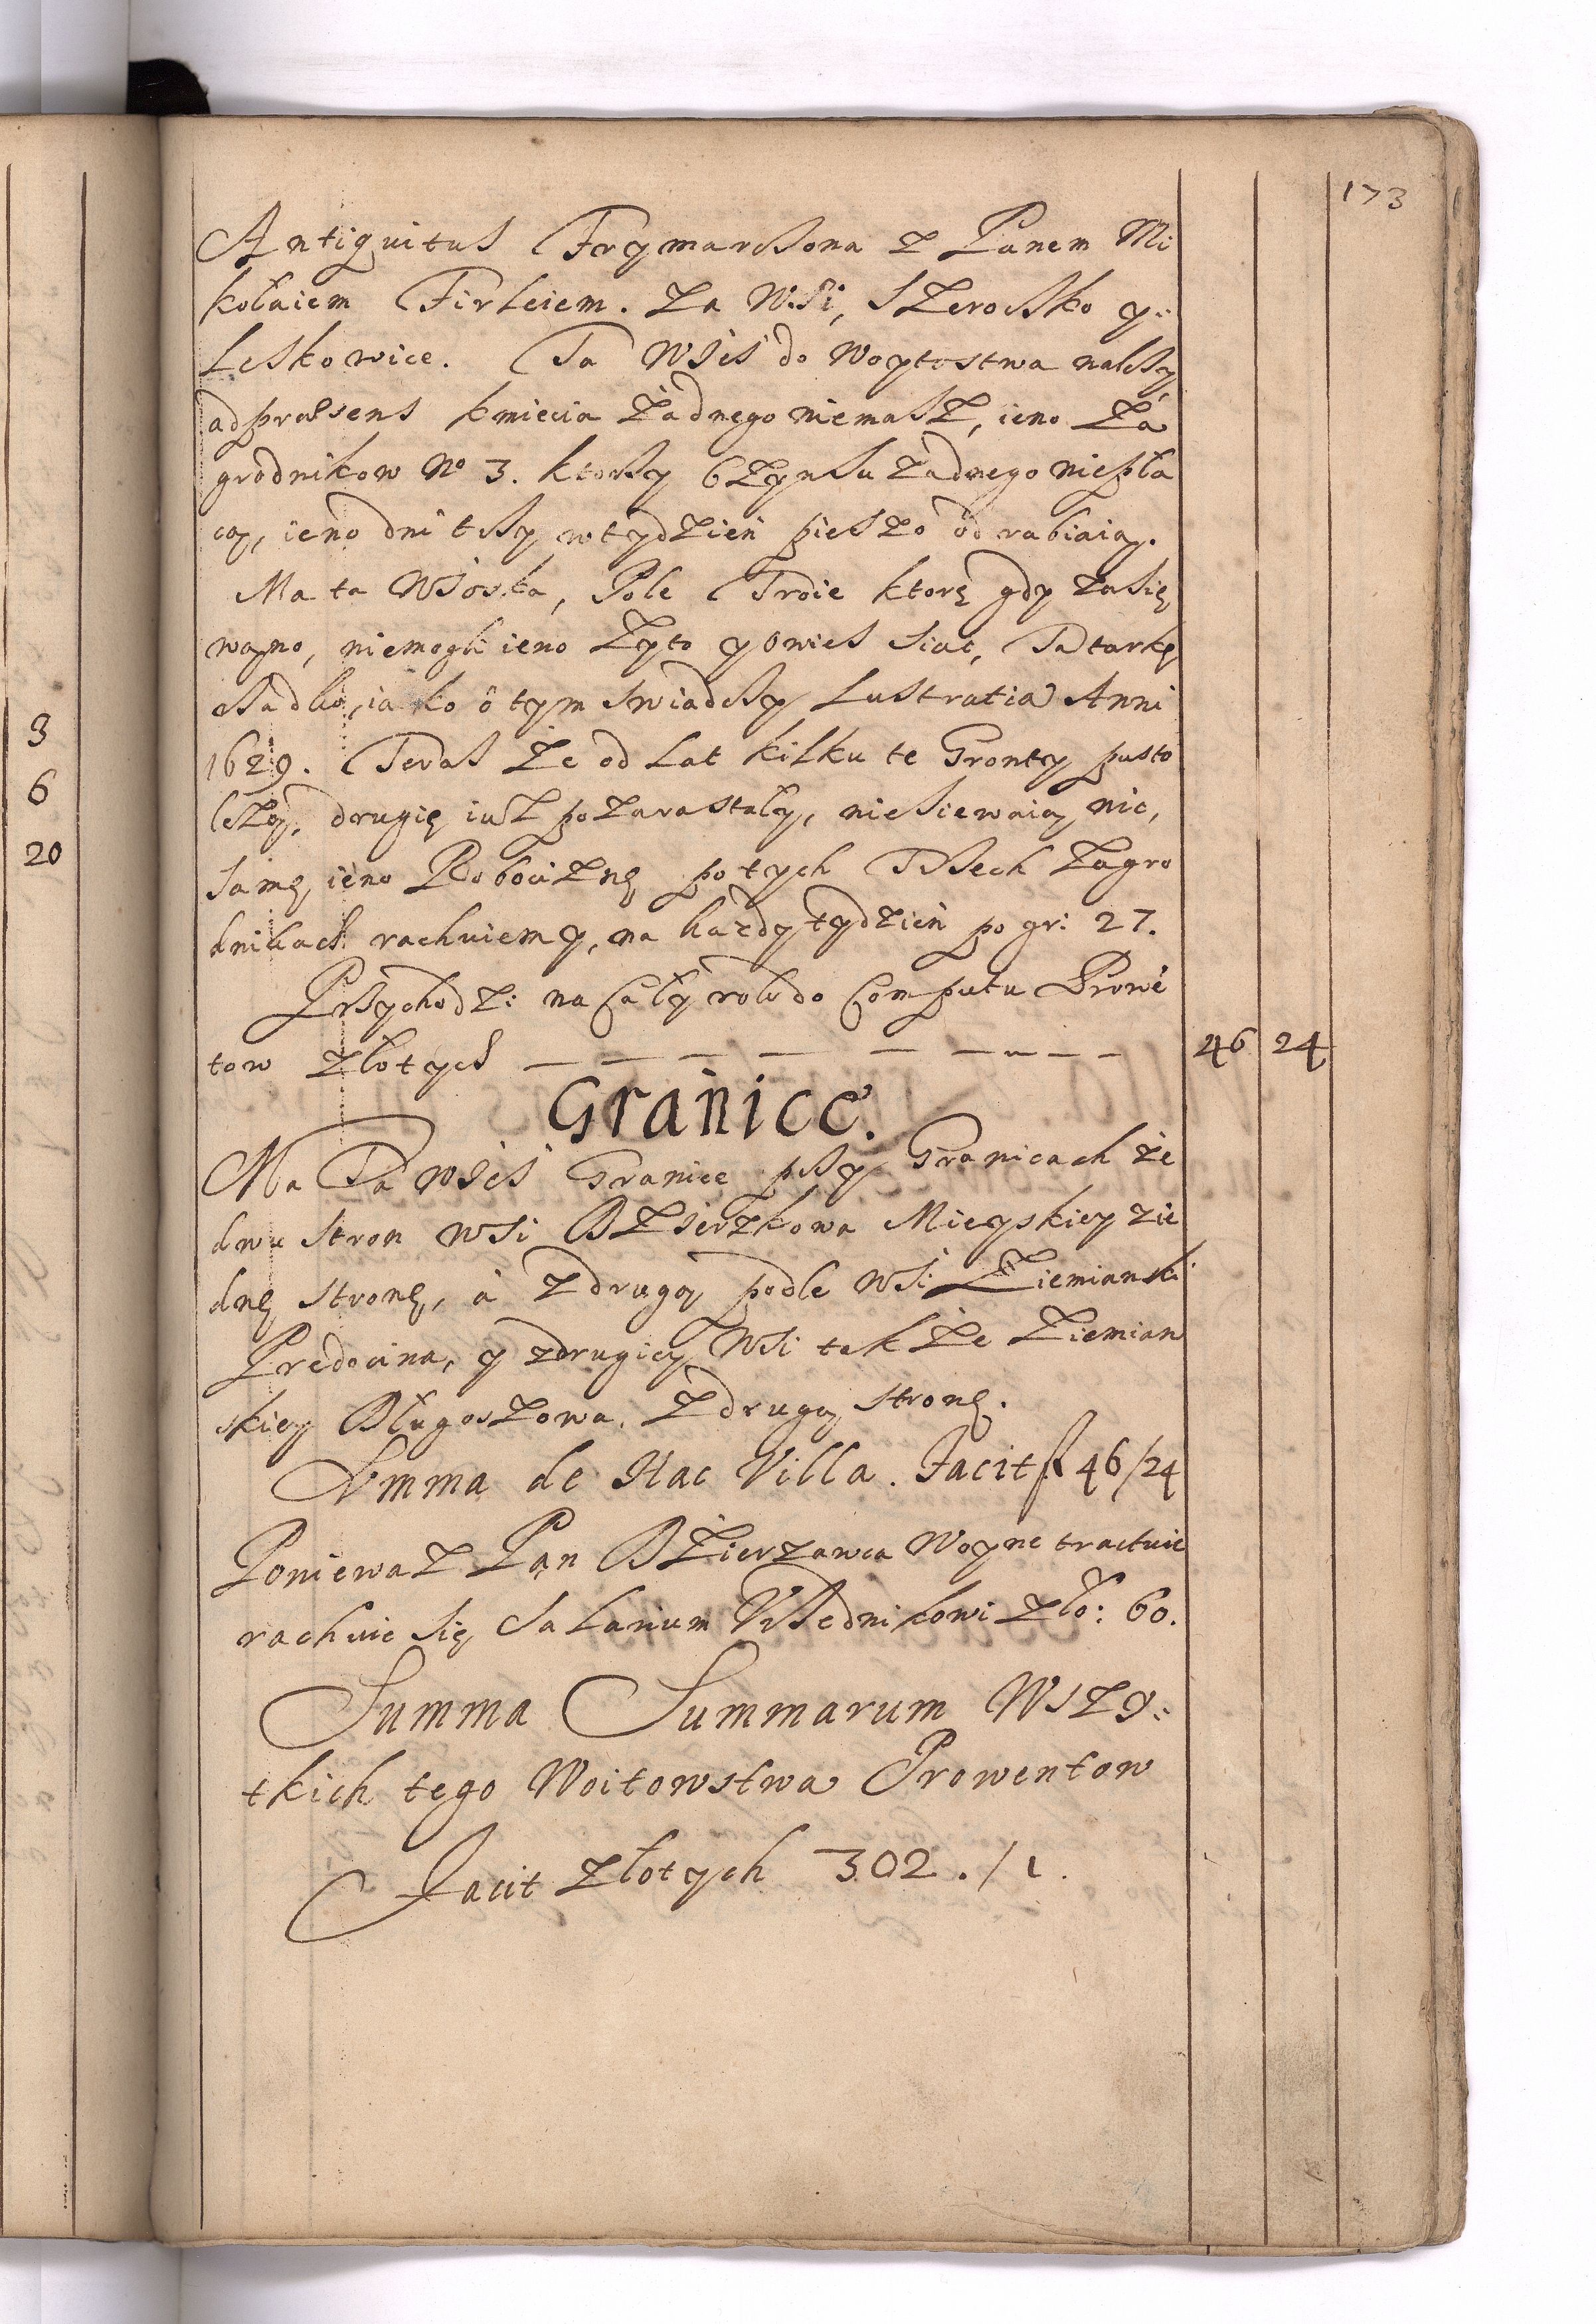 173
Antiquitus Frymarczona z Panem Mi
kołaiem Firleiem. Za Wsi, Szerocsko y
Leskowice. Ta Wieś do Woytostwa należy
ad præsens kmiecia Żadnego niemasz, ieno Za
grodnikow No 3. ktorzy Czynszu żadnego niepła
cą, ieno dni trzy w tydzień pieszo odrabiaią.
Ma ta Wioska, Pole Troie ktorę gdy zasię
wayno, niemogli ieno Zyto y Owies siać, Tatarkę
rzadko, iako o tym swiadczy Lustratia Anni
1629. Teras że od Lat kilku te Gronty pusto
leżą, drugię iusz pozarastały, niesiewaią nic,
samę ieno Roboćiznę po tych Trzech Zagro
dnikach rachuiemy, na każdy tydzień po gr: 27.
Przychodzi na cały rok do Computu Prowe
tow złotych — — — — — — — — 46 24
Granice.
Ma Ta Wieś Granice przy Granicach ze
dwu stron wsi Dzierzkowa Mieyskiey zie
dnę stronę, a z drugą podle wsi Ziemianski
Predocina, y z drugiey Wsi także Ziemian
skiey Długoszowa, z drugą stronę.
Summa de Hac Villa. Facit fl 46/24
Poniewasz Pan Dzierzawca Woyne tractuie
rachuie się Salarium Vrzednikowi zło: 60.
Summa Summarum Wszy
tkich tego Woitowstwa Prowentow
Facit złotych 302./1.
3
6
20